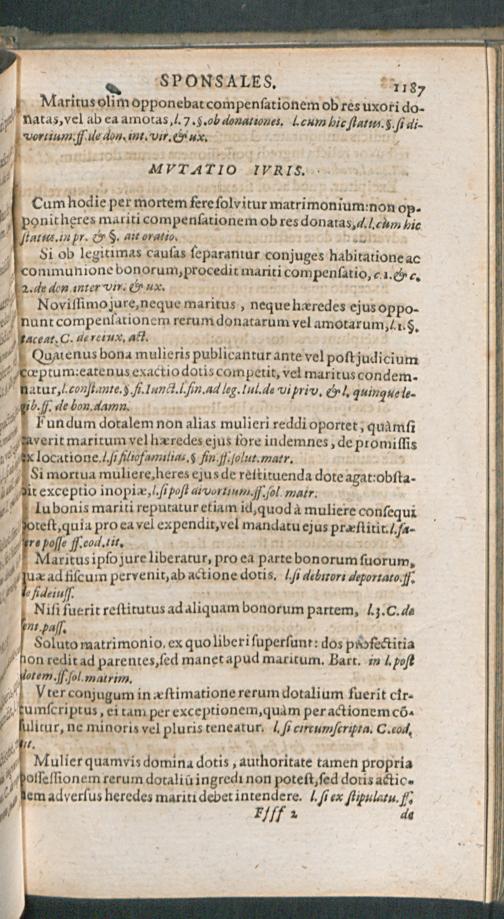 SPONSALES. 1187
Maritus olim opponebat compensationem ob res uxori do-
natas, vel ab ea amotas, l. 7. §. ob donationes. l. cum hic status. §. si di-
vortium. ff. de don. int. vir. & ux.
MVTATIO IVRIS.
Cum hodie per mortem fere solvitur matrimonium: non op-
ponit heres mariti compensationem ob res donatas, d. l. cùm hic
status. in pr. & §. ait oratio.
Si ob legitimas causas separantur conjuges habitatione ac
communione bonorum, procedit mariti compensatio, c. 1. & c.
2. de don inter vir. & ux.
Novissimo jure, neque maritus, neque hæredes ejus oppo-
nunt compensationem rerum donatarum vel amotarum, l. 1. §.
taceat. C. de rei ux. act.
Quatenus bona mulieris publicantur ante vel post judicium
cœptum: eatenus exactio dotis competit, vel maritus condem-
natur, l. const. ante. §. fi. Iunct. l. fin. ad leg. Iul. de vi priv. & l. quinque le-
gib. ff. de bon. damn.
Fundum dotalem non alias mulieri reddi oportet, quàm si
caverit maritum vel hæredes ejus fore indemnes, de promissis
ex locatione. l. si filiofamilias. § fin. ff. solut. matr.
Si mortua muliere, heres ejus de restituenda dote agat: obsta-
bit exceptio inopiæ, l. si post divortium. ff. sol. matr.
In bonis mariti reputatur etiam id, quod à muliere consequi
potest, quia pro ea vel expendit, vel mandatu ejus præstitit. l. fa-
cere posse ff. eod. tit.
Maritus ipso jure liberatur, pro ea parte bonorum suorum,
quæ ad fiscum pervenit, ab actione dotis. l. si debitori deportato. ff.
de fideiuss.
Nisi fuerit restitutus ad aliquam bonorum partem, l. 3. C. de
sent. pass.
Soluto matrimonio, ex quo liberi supersunt: dos profectitia
non redit ad parentes, sed manet apud maritum. Bart. in l. post
dotem. ff. sol. matrim.
Vter conjugum in æstimatione rerum dotalium fuerit cir-
cumscriptus, ei tam per exceptionem, quàm per actionem cõ-
sulitur, ne minoris vel pluris teneatur. l. si circumscripta. C. eod.
tit.
Mulier quamvis domina dotis, authoritate tamen propria
possessionem rerum dotaliũ ingredi non potest, sed dotis actio-
nem adversus heredes mariti debet intendere. l. si ex stipulatu. ff.
Ffff 2 de